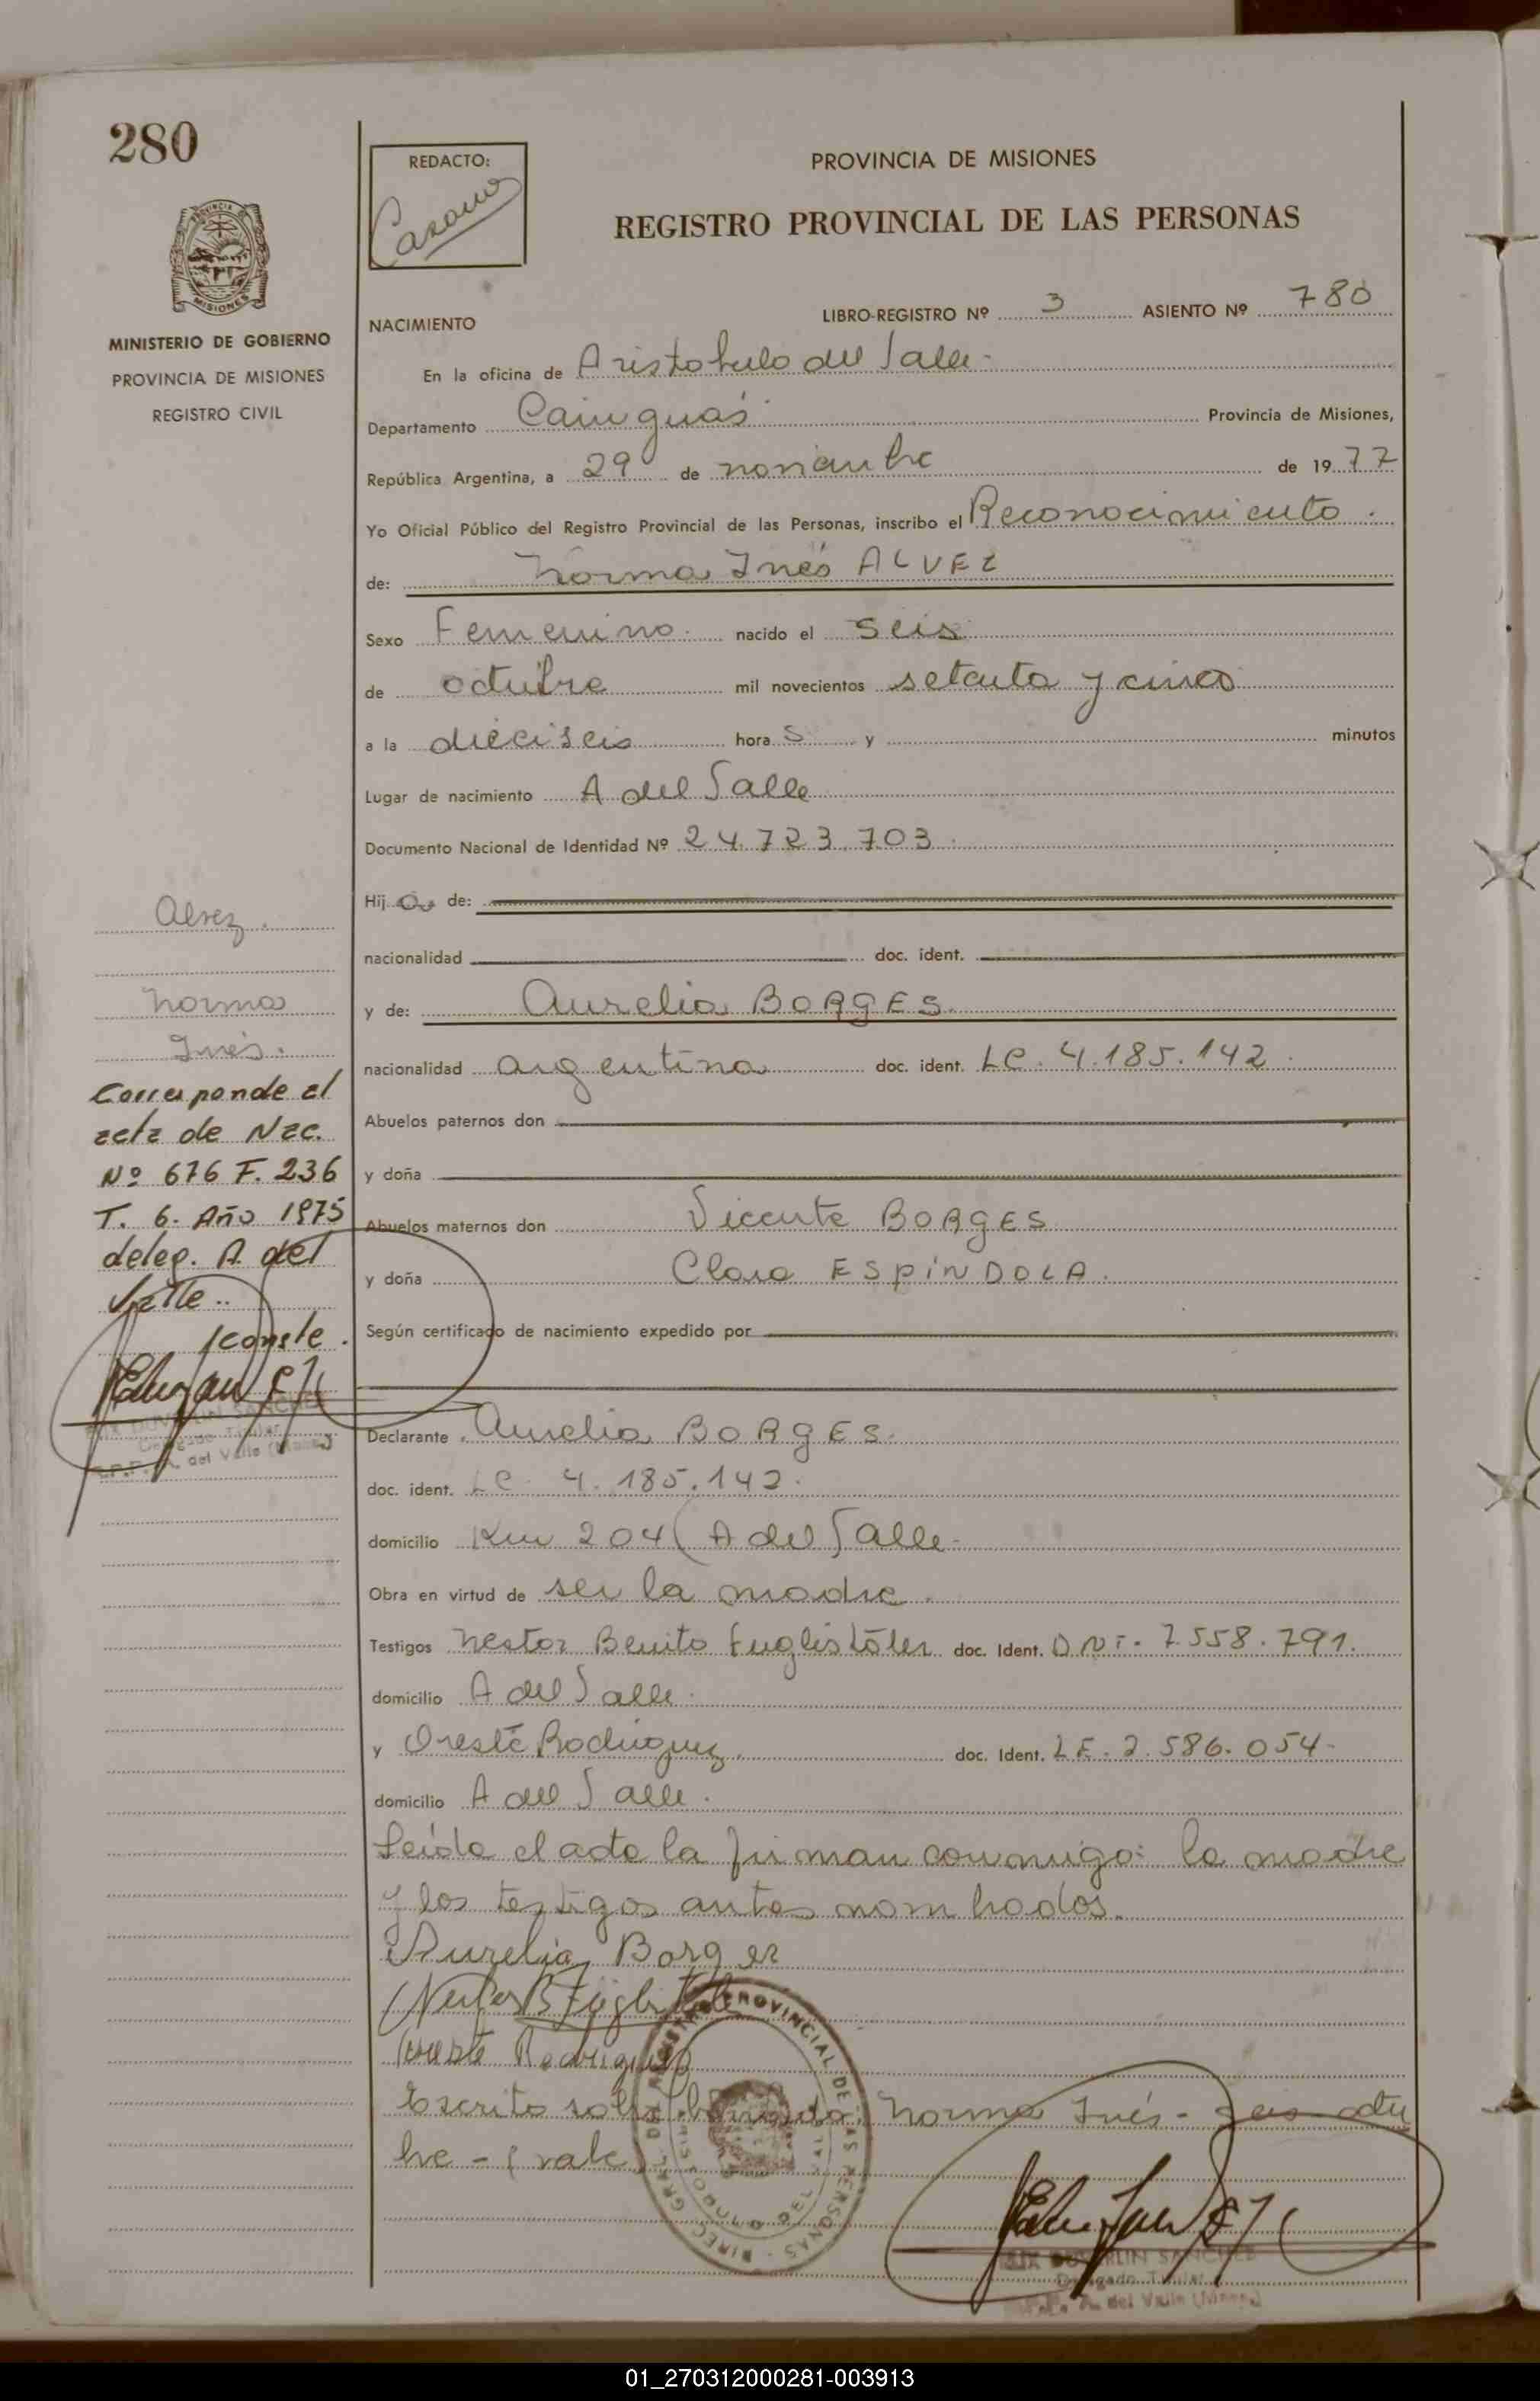 280
REDACTO:
PROVINCIA DE MISIONES
REGISTRO PROVINCIAL DE LAS PERSONAS
PROVINCIA
MISIONES
MINISTERIO DE GOBIERNO
PROVINCIA DE MISIONES
REGISTRO CIVIL
NACIMIENTO
LIBRO-REGISTRO Nº 3 ASIENTO Nº 780
En la oficina de Aristobulo del Valle
Departamento Cainguás Provincia de Misiones,
República Argentina, a 29 de noviembre de 1977
Yo Oficial Público del Registro Provincial de las Personas, inscribo el Reconocimiento.
de: Norma Inés ALVEZ
Sexo Femenino. nacido el seis
de octubre mil novecientos setenta y cinco
a la dieciseis hora s y minutos
Lugar de nacimiento A del Valle
Documento Nacional de Identidad Nº 24.723.703.
Hij a de:
nacionalidad doc. ident.
y de: Aurelia BORGES.
nacionalidad argentina doc. ident. LC. 4.185.142.
Abuelos paternos don
y doña
Abuelos maternos don Vicente BORGES
y doña Clara ESPINDOLA.
Según certificado de nacimiento expedido por
Alvez.
Norma
Inés.
Corresponde al
acta de Nac.
Nº 676 F. 236
T. 6. Año 1975
deleg. A. del
Valle..
/conste.
DUVERLIN SANCHEZ
Delegado Titular
A. del Valle (Mnes.)
Declarante Aurelia BORGES.
doc. ident. LC 4.185.142.
domicilio Km 204 ( A del Valle.
Obra en virtud de ser la madre.
Testigos Nestor Benito Fuglistaler doc. Ident. D.N.I. 7.558.791.
domicilio A del Valle.
y Oreste Rodriguez. doc. Ident. L.E. 2.586.054-
domicilio A del Valle.
Leída el acta la firman conmigo: la madre
y los testigos antes nombrados.
Aurelia Borges
Oreste Rodriguez
Escrito sobre borrado: Norma Inés - seis octu
bre - (vale
DIRECC. GRAL. DEL REGISTRO PROVINCIAL DE LAS PERSONAS
DUVERLIN SANCHEZ
Delegado Titular
A. del Valle (Mnes.)
01_270312000281-003913